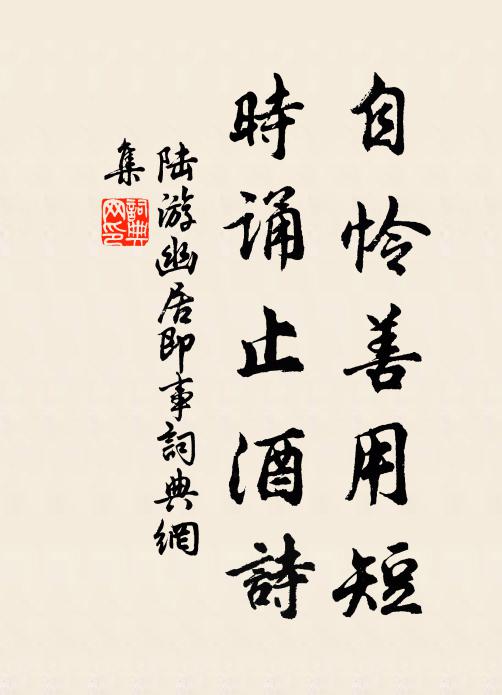 自怜善用短
時誦止酒詩
陆游幽居即事詞典網
集
詞典
网印